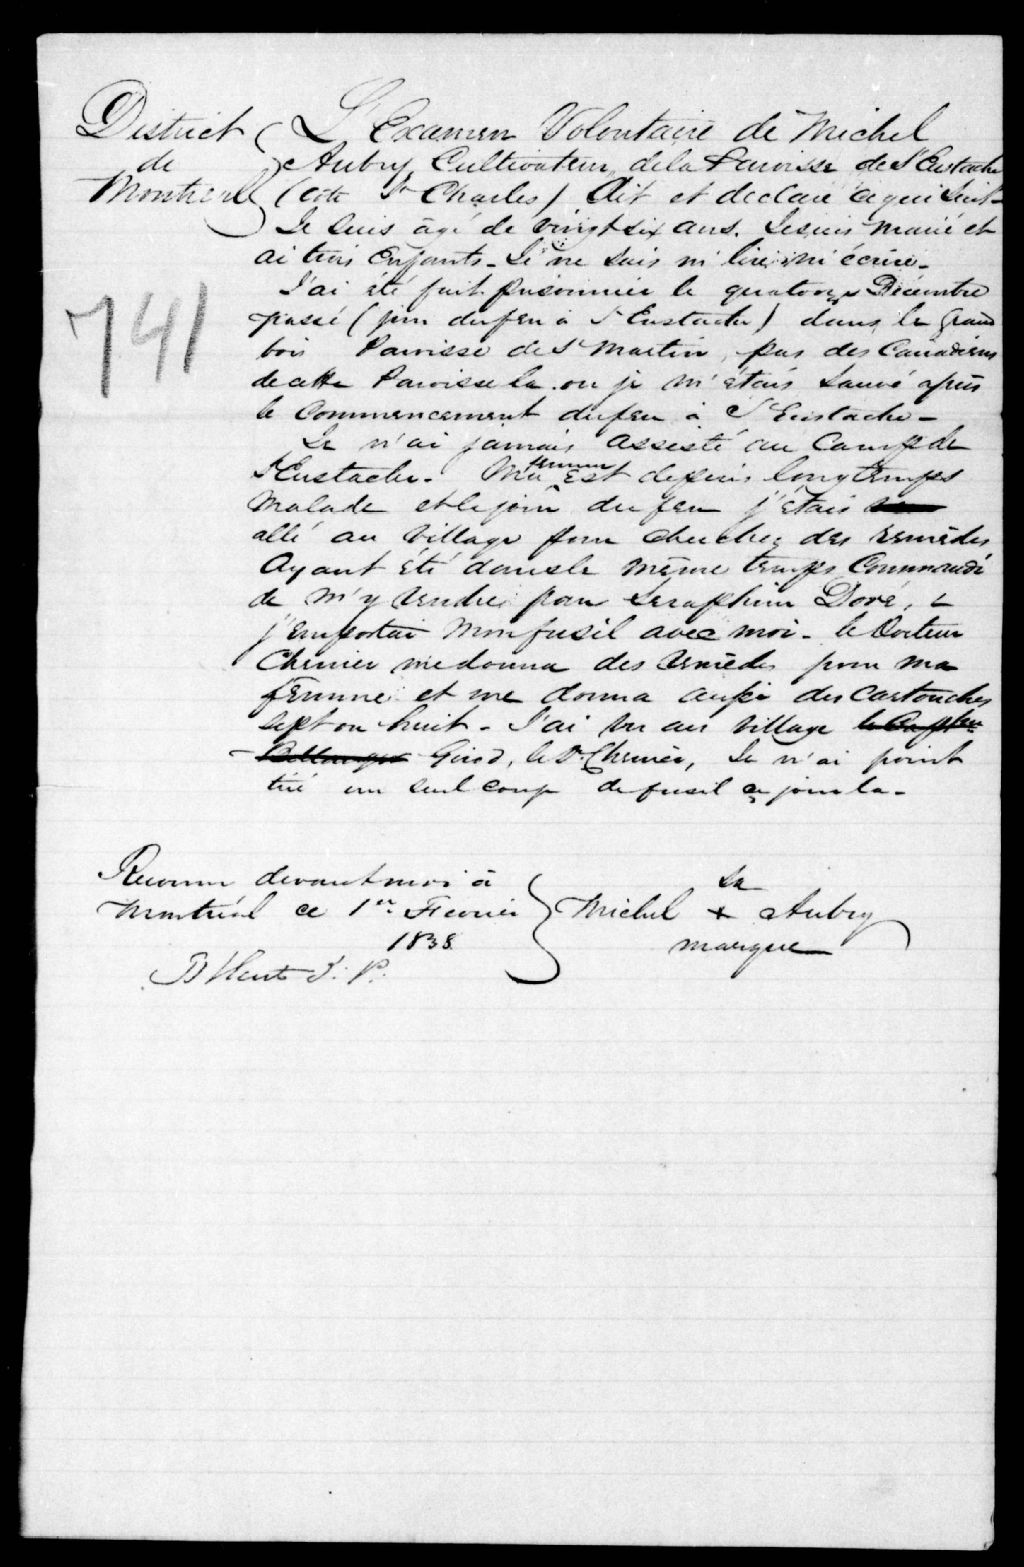 District de Montreal
L'Examen Volontaire de Michel
Aubry, Cultivateur, de la Paroisse de St Eustache
(Côte St Charles) dit et declare ce qui suit -
Je suis âgé de vingt six ans. Je suis marié et
ai trois Enfants - Je ne sais ni lire ni écrire -
J'ai été fait prisonnier le quatorze Décembre
passé (jour du feu à St Eustache) dans le grand
bois Paroisse de St Martin, par des Canadiens
de cette Paroisse la ou je m'étais sauvé après
le Commencement du feu à St Eustache -
Je n'ai jamais assisté au Camp de
St Eustache. Ma femme Est depuis longtemps
malade et le jour du feu j'étais
allé au Village pour chercher des remèdes
Ayant été dans le même temps Commandé
de m'y rendre par Seraphim Doré, &
j'emportai mon fusil avec moi - le Docteur
Chenier me donna des remèdes pour ma
femme et me donna aussi des Cartouches
sept ou huit - J'ai vu au Village
Girod, le Dr. Chenier, Je n'ai point
tiré un seul coup de fusil ce jour la -
741
Reconnu devant moi à
Montréal ce 1er Fevrier
1838
P. J. P.
Sa
Michel + Aubry
marque